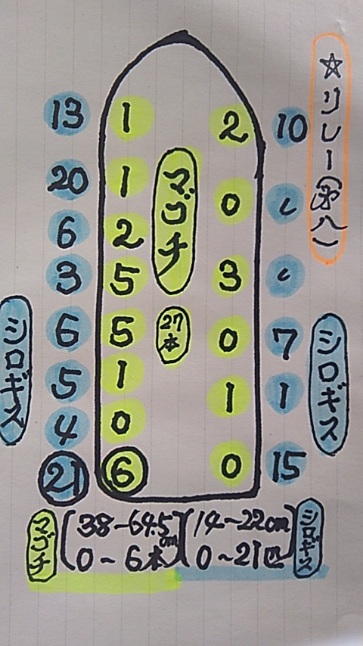 ☆リレー船
13 1 2 10
20 1 0 〃
6 2
3 5 3 〃
マゴチ
27本
6 5 0 7
5 1 1 1
4 0
21 6 0 15
シロギス
シロギス
マゴチ (38~64.5cm) (14~22cm) シロギス
0~6本 0~21匹